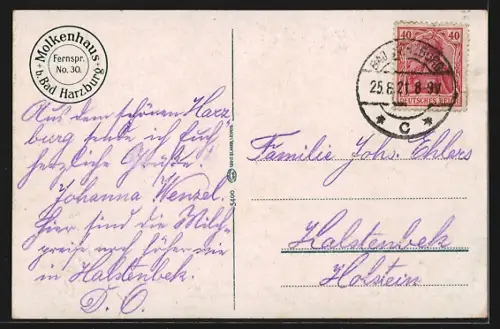 Molkenhaus
b. Bad Harzburg
Fernspr.
No. 30.
Aus dem schönen Harz
burg sende ich Euch
herzliche Grüße.
Johanna Wenzel.
Hier sind die Milch-
preise noch höher wie
in Halstenbek.
D. O.
5400
40 40
BAD HARZBURG
25.6.21. 8-9V
* C *
DEUTSCHES REICH
Familie Johs. Ehlers
Halstenbek
Holstein